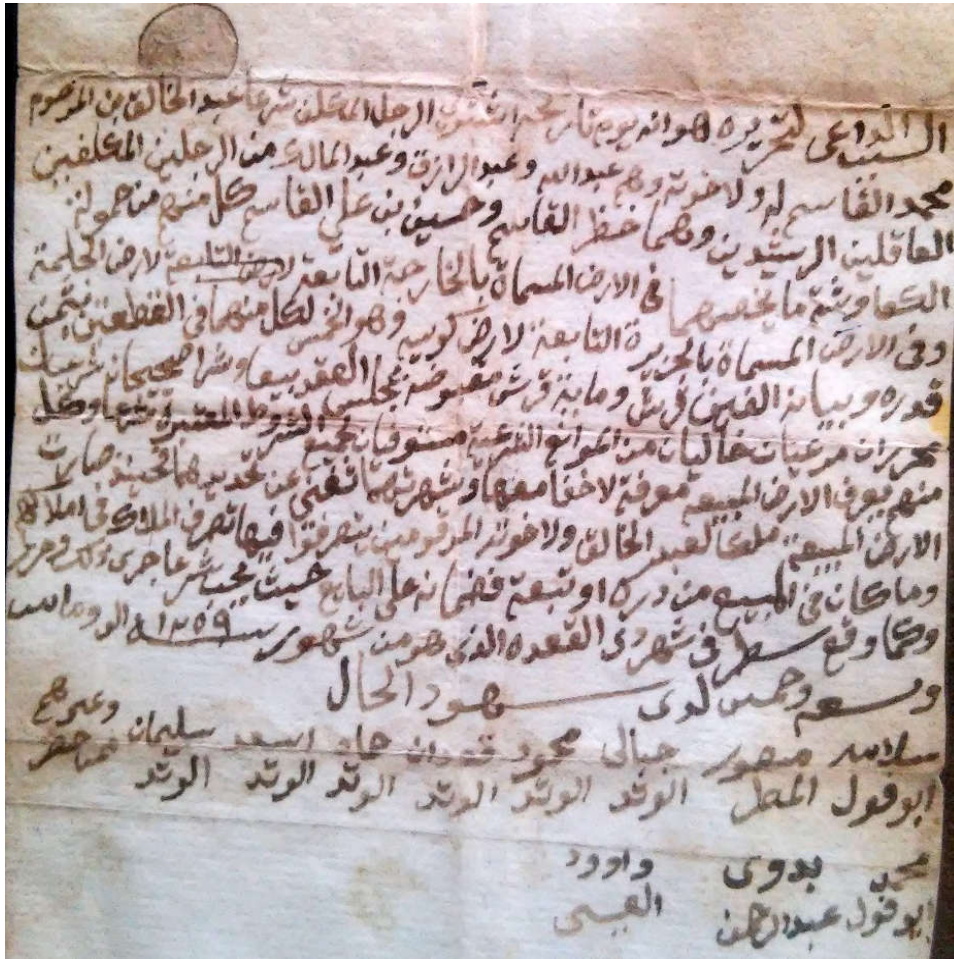 السبب الداعي لتحريره هو انه يوم تاريخه اشترى الرجل المكلف شرعا عبد الخالق بن المرحوم
محمد القاسم له ولاخوته وهم عبد الله وعبد الرازق وعبد المالك من الرجلين المكلفين
العاقلين الرشيدين وهما خنظر القاسم وحسين بن علي القاسم كل منهم من حمولة
الكعاوشة ما يخصهما في الارض المسماة بالخارجة التابعة لارض التابعة لارض الحلمة
وفي الارض المسماة بالجزيرة التابعة لارض كويبه وهو الخمس لكل منهما في القطعتين بثمن
قدره وبيانه الفين قرش وماية قرش مقبوضة بمجلس العقد بيعا وشرا صحيحان شرعيان
محرران مرعيان خاليان من الموانع الشرعية مستوفيان لجميع الشروط المعتبرة شرعا وكل
منهم يعرف الارض المبيعه معرفة لا خفا معها وشهرتهما تغني عن تحديدهما فحينئذ صارت
الارض المبيعه ملكا لعبد الخالق ولاخوته المرقومين يتصرفوا فيها تصرف الملاك في املاكهم
وما كان في المبيع من درك او تبعة فضمانه على البايع حيث يجب شرعا جرى ذلك وحرر
وكما وقع سطر في شهر ذي القعده الذي هو من شهور سنة ١٢٥٩ الف وماتين
وتسعه وخمسين لدى شهود الحال
سلامه منصور جبالي محمود قعدان حامد اسعد سليمان وغيرهم
ابو فول المطل الوتد الوتد الوتد الوتد الوتد الوتد من حضر
محمد بدوي داوود
ابو فول عبد الرحمن العيسى